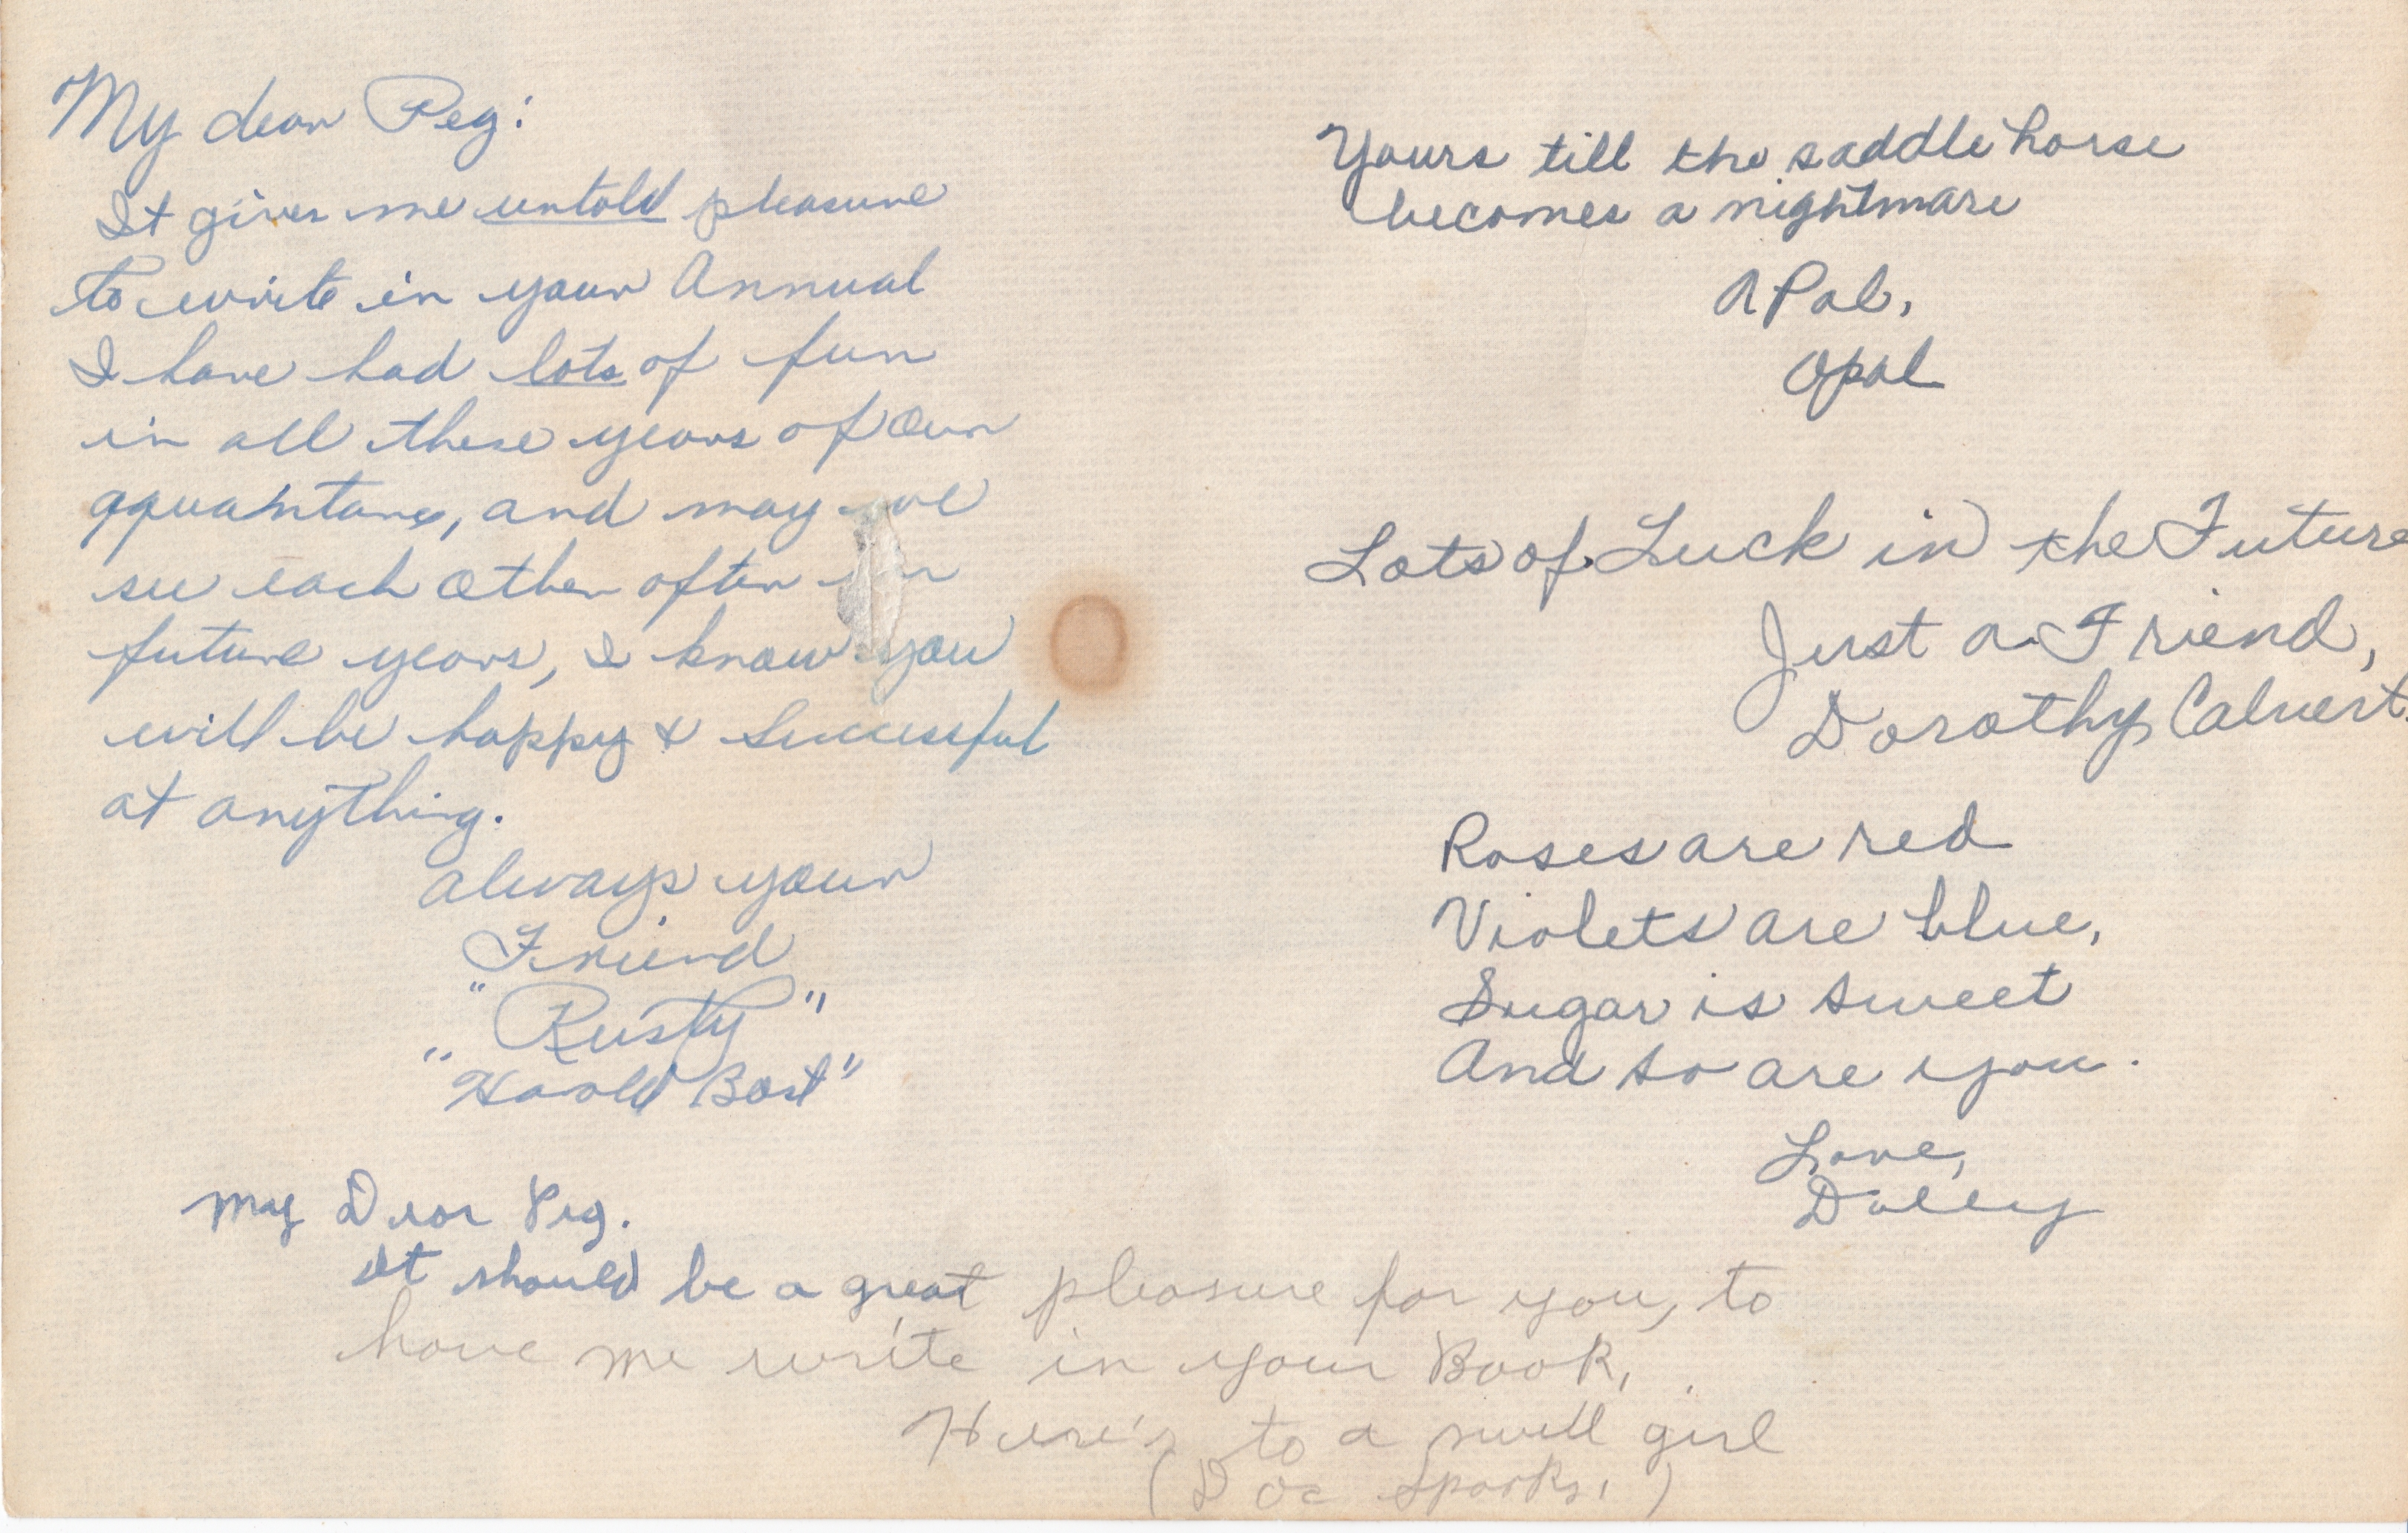 My dear Peg:
It gives me untold pleasure
to write in your Annual
I have had lots of fun
in all these years of our
aquaintance, and may we
see each other often in
future years, I know you
will be happy & Successful
at anything.
always your
Friend
"Rusty"
"Harold Bost"
My Dear Peg.
It should be a great pleasure for you, to
have me write in your Book,
Here's to a swell girl
(Doc Sparks,)
Yours till the saddle horse
becomes a nightmare
A Pal,
Opal
Lots of Luck in the Future
Just a Friend,
Dorothy Calvert.
Roses are red
Violets are blue,
Sugar is sweet
And so are you.
Love,
Dolley